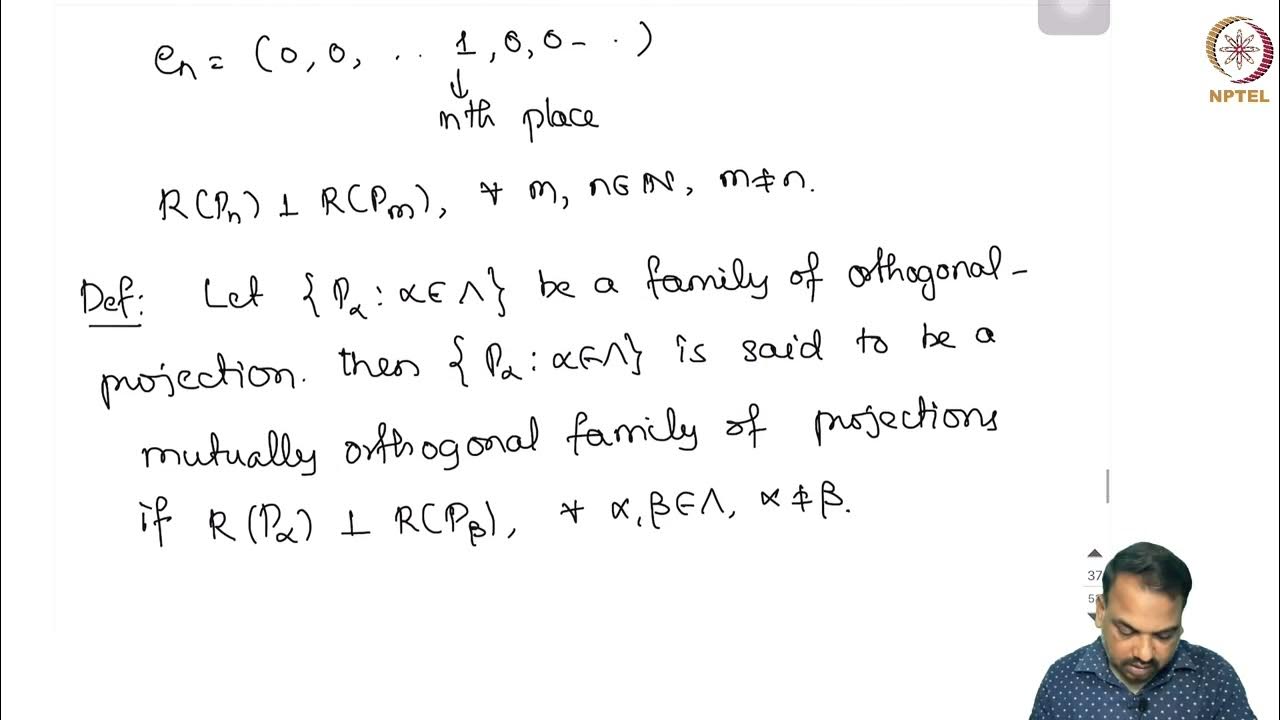 eₙ = (0, 0, .. 1, 0, 0 - . .)
↓
nth place
NPTEL
R(Pₙ) ⊥ R(Pₘ), ∀ m, n ∈ ℕ, m ≠ n.
Def: Let {P_α : α ∈ Λ} be a family of orthogonal-
projection. then {P_α : α ∈ Λ} is said to be a
mutually orthogonal family of projections
if R(P_α) ⊥ R(P_β), ∀ α, β ∈ Λ, α ≠ β.
37